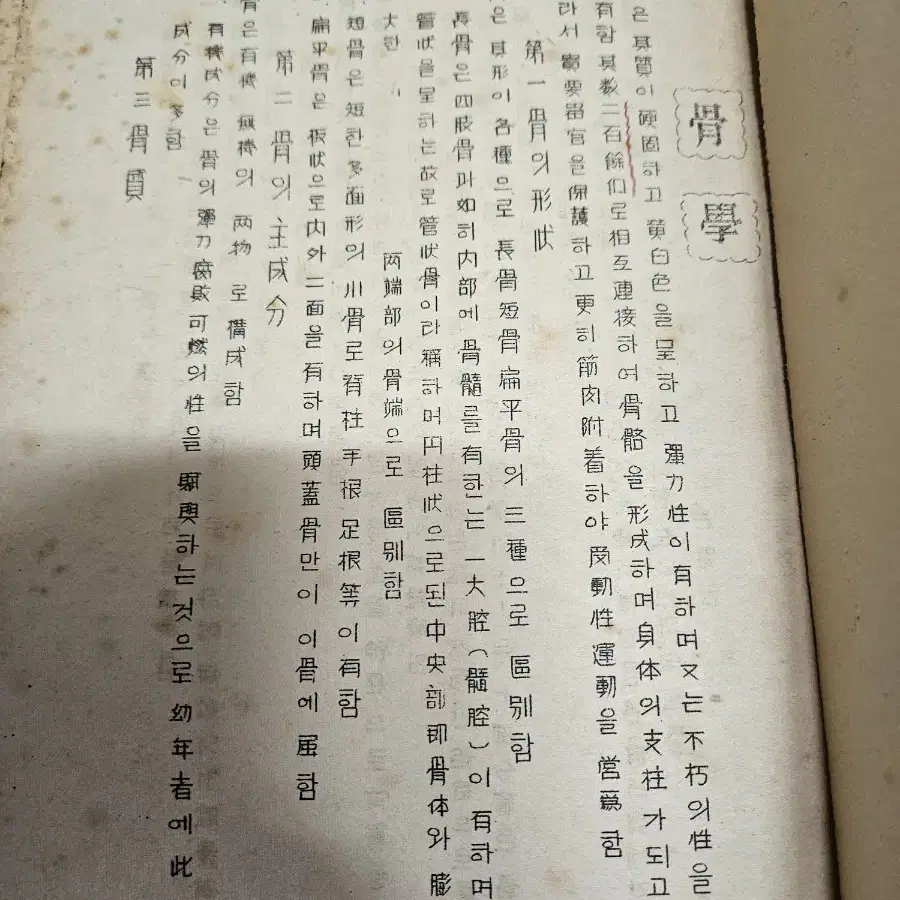 骨學
은 其質이 硬固하고 黄白色을 呈하고 彈力性이 有하며 又는 不朽의 性을
有함 其数 二百餘個로 相互連接하여 骨骼을 形成하며 身体의 支柱가 되고
라서 重要器官을 保護하고 更히 筋肉附着하야 受動性運動을 營爲함
第一 骨의 形状
은 其形이 各種으로 長骨 短骨 扁平骨의 三種으로 區別함
長骨은 四肢骨과 如히 内部에 骨髓를 有하는 一大腔(髓腔)이 有하며
管状을 呈하는 故로 管状骨이라 稱하며 円柱状으로된 中央部 即 骨体와 膨
大한 两端部의 骨端으로 區別함
短骨은 短한 多面形의 小骨로 脊柱 手根 足根等이 有함
扁平骨은 板状으로 内外二面을 有하며 頭蓋骨만이 이끔에 届함
第二 骨의 主成分
骨은 有機 無機의 两物로 構成함
有機成分은 骨의 彈力 腐敗 可燃의 性을 賦與하는 것으로 幼年者에 此
成分이 多함
第三 骨質